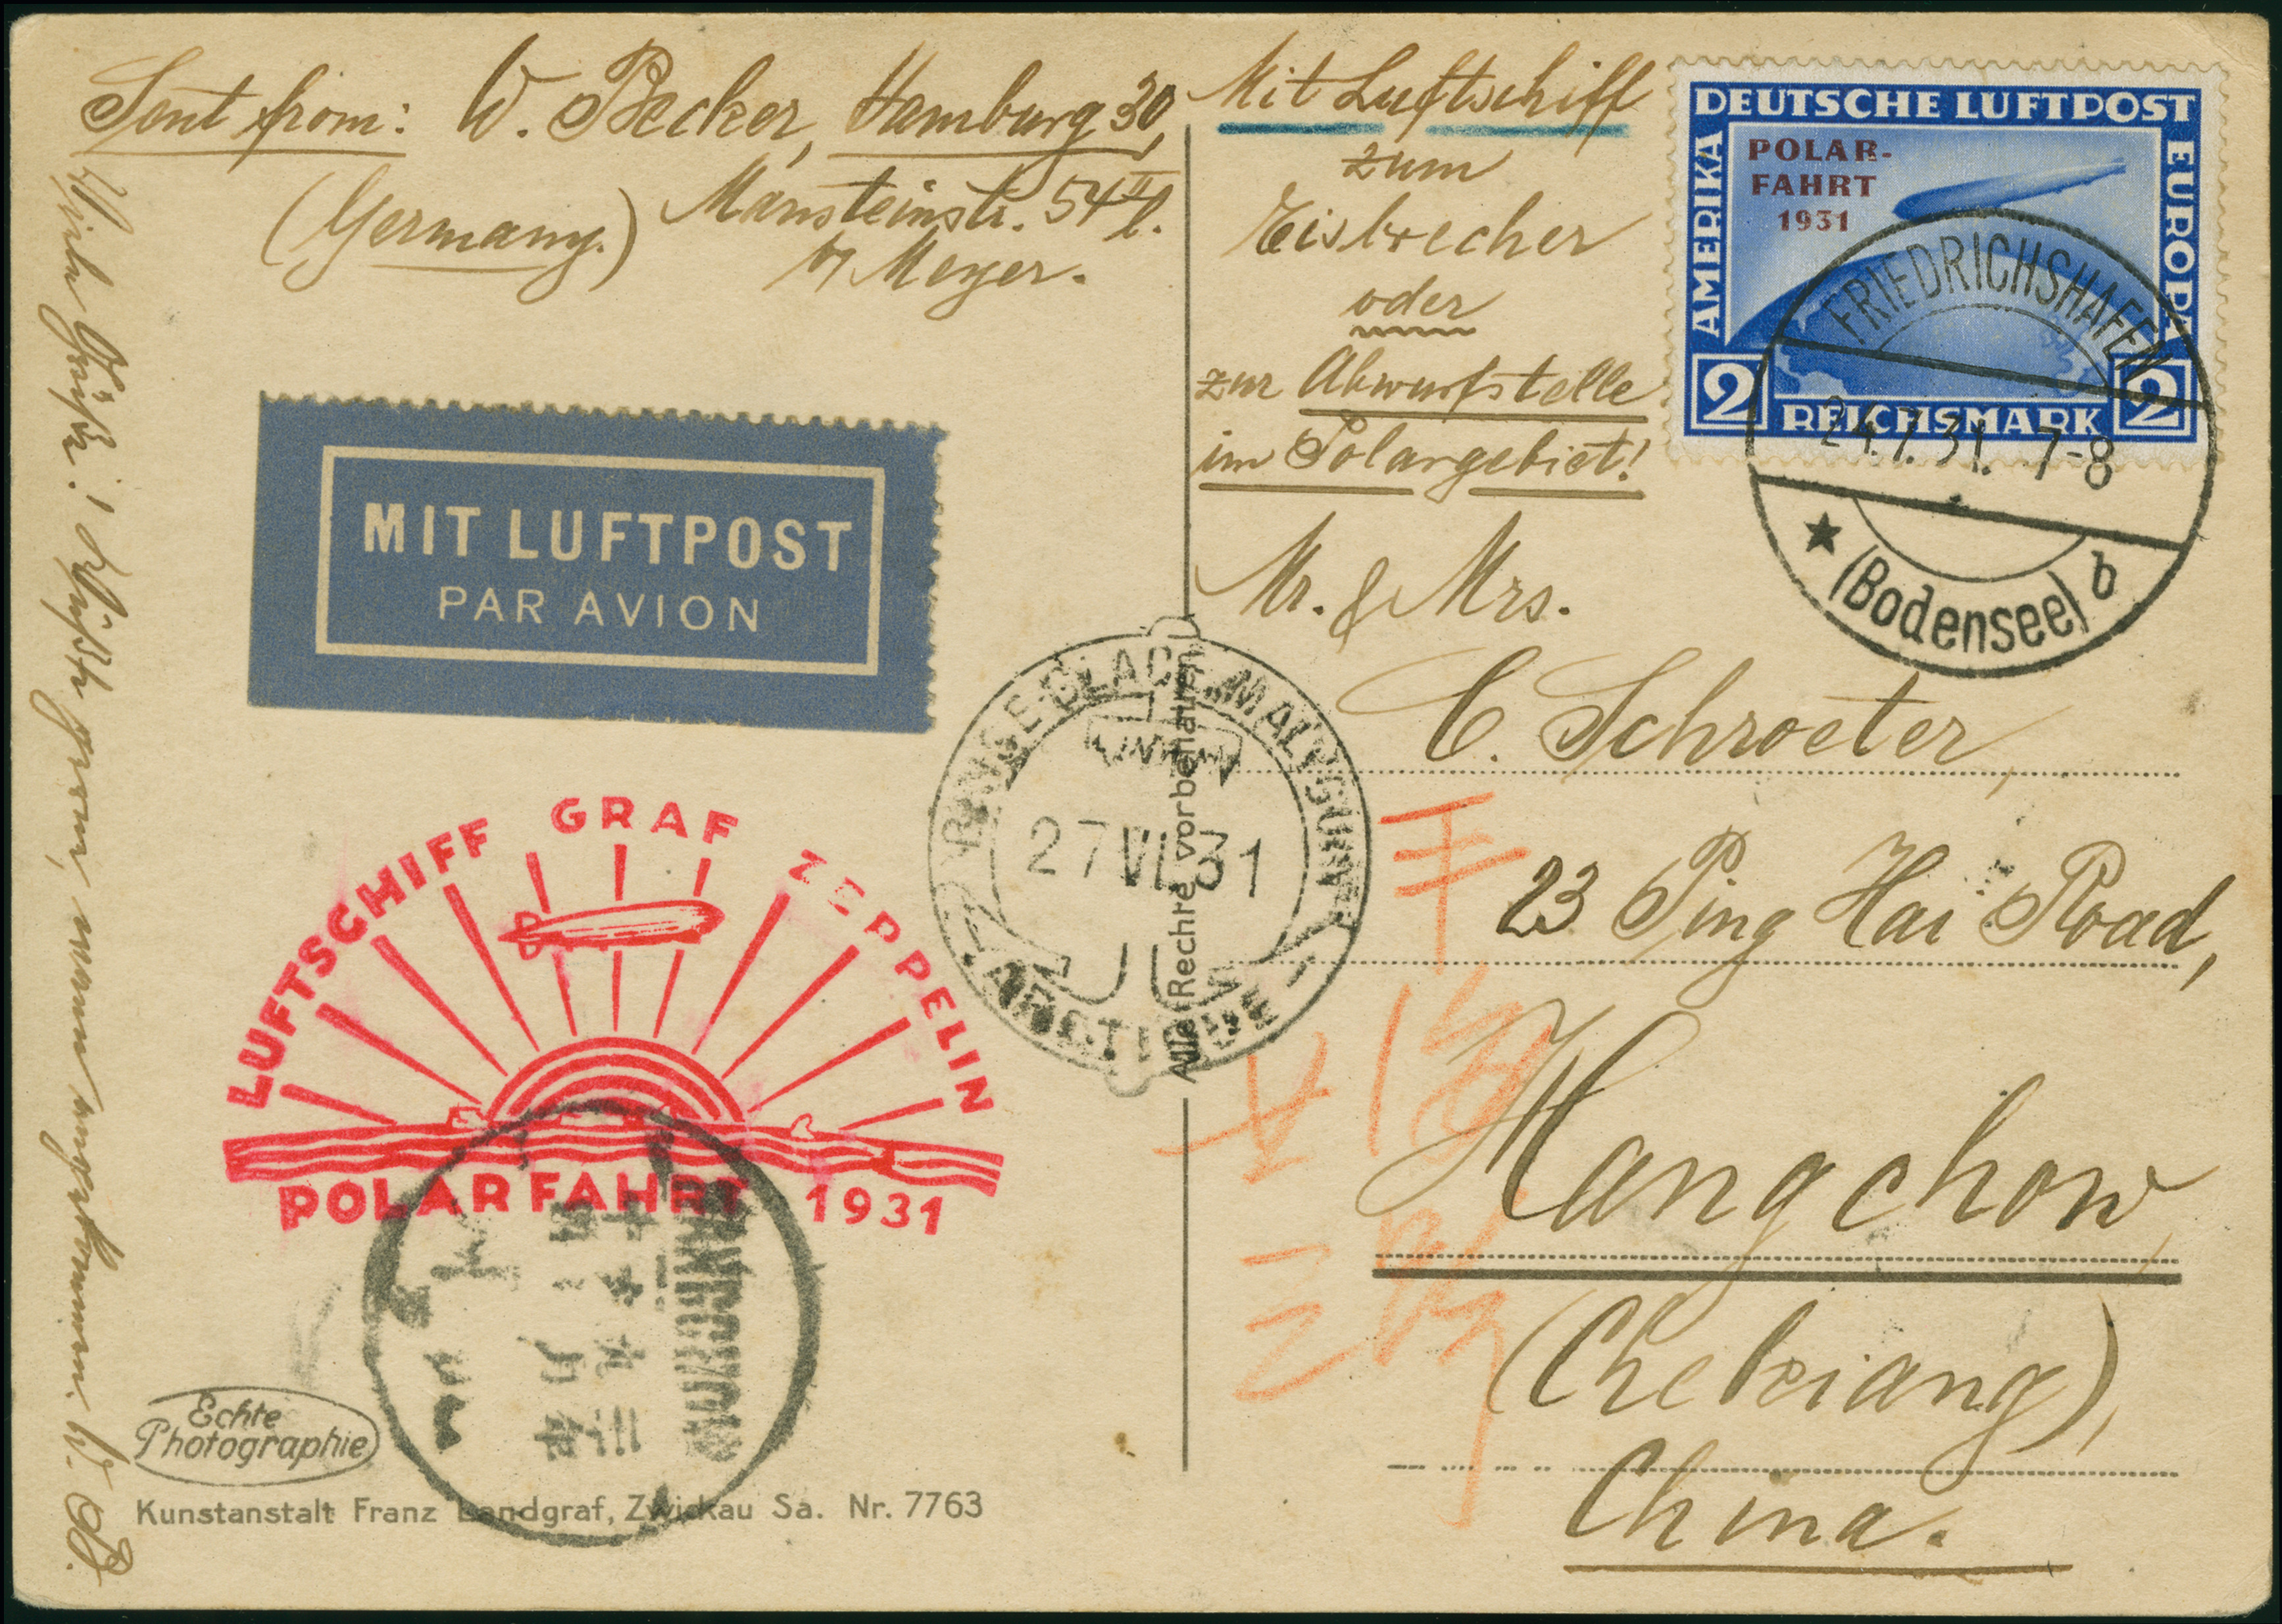 Sent from: W. Becker, Hamburg 30,
(Germany.) Mansteinstr. 54 II l.
b/ Meyer.
Mit Luftschiff
zum
Eisbrecher
oder
zur Abwurfstelle
im Polargebiet!
DEUTSCHE LUFTPOST
AMERIKA
EUROPA
POLAR-
FAHRT
1931
2 REICHSMARK 2
FRIEDRICHSHAFEN
24.7.31. 7-8
(Bodensee) b
MIT LUFTPOST
PAR AVION
Mr. & Mrs.
C. Schroeter,
23 Ping Hai Road,
Hangchow
(Chekiang),
China.
BRISE-GLACE „MALYGUINE“
27 VII 31
ARCTIQUE
Alle Rechte vorbehalten
LUFTSCHIFF GRAF ZEPPELIN
POLARFAHRT 1931
HANGCHOW
Echte
Photographie
Kunstanstalt Franz Landgraf, Zwickau Sa. Nr. 7763
Viele Grüße! wenn angekommen. W. B.